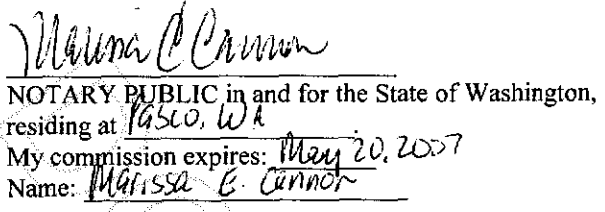 Marissa E Cannon
NOTARY PUBLIC in and for the State of Washington,
residing at Pasco, WA
My commission expires: May 20, 2007
Name: Marissa E. Cannon